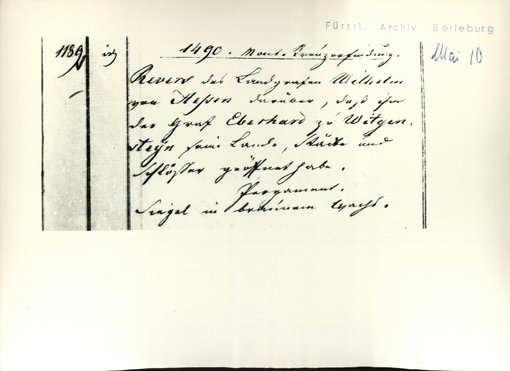 Fürstl. Archiv Berleburg
Mai 10
1189
1490. Mont. Kreuzerfindung.
Revers des Landgrafen Wilhelm
von Hessen darüber, daß ihm
der Graf Eberhard zu Witgen-
steyn seine Lande, Städte und
Schlösser geöffnet habe.
Pergament.
Siegel in braunem Wachs.